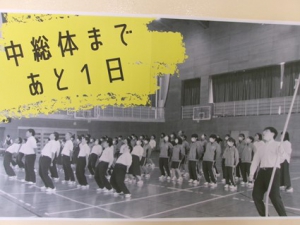 中総体まで
あと1日